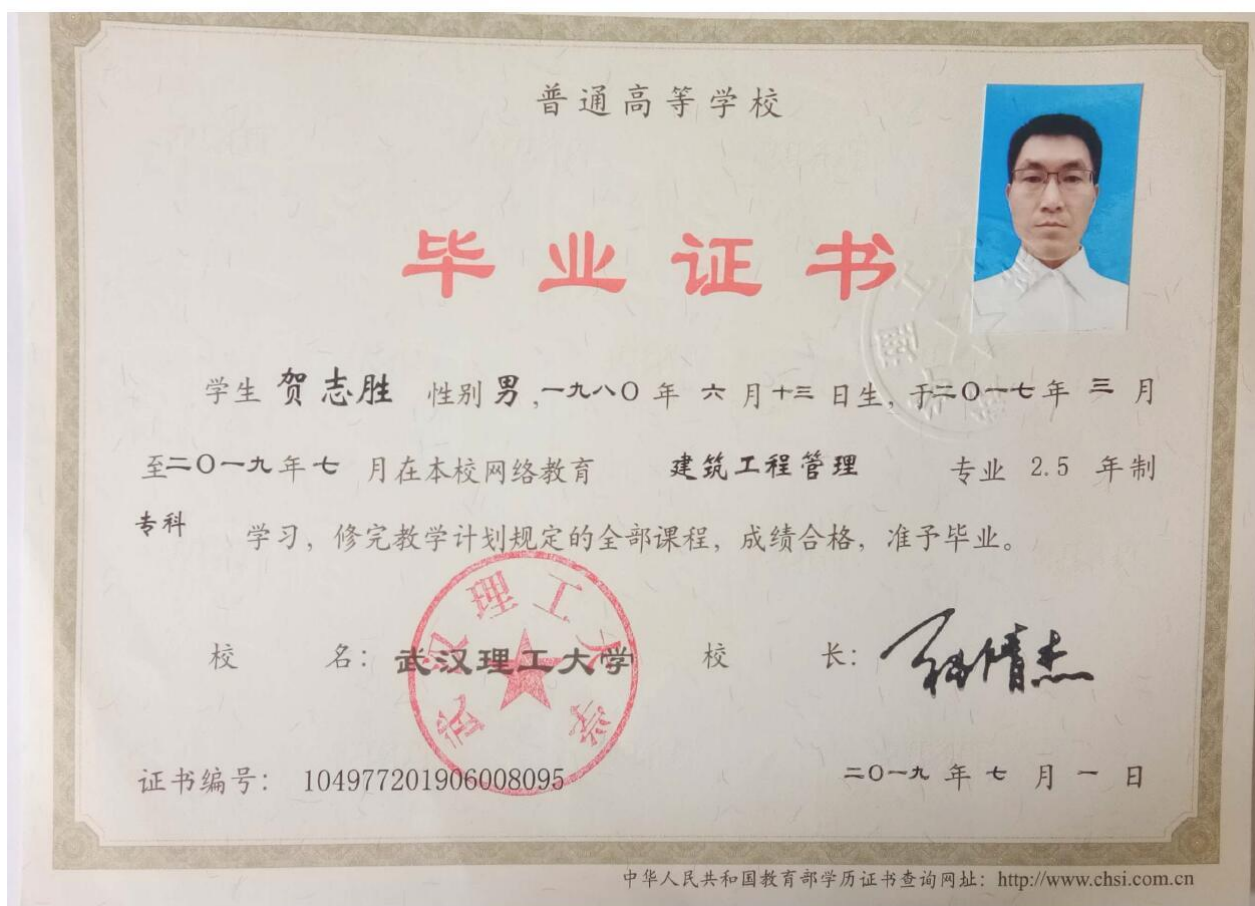 普通高等学校
毕业证书
学生 贺志胜 性别 男,一九八〇年 六 月十三 日生, 于二〇一七年 三 月
至二〇一九年七 月在本校网络教育 建筑工程管理 专业 2.5 年制
专科 学习, 修完教学计划规定的全部课程, 成绩合格, 准予毕业。
校 名: 武汉理工大学 校 长:
武汉理工大学
证书编号: 104977201906008095 二〇一九 年 七 月 一 日
中华人民共和国教育部学历证书查询网址: http://www.chsi.com.cn